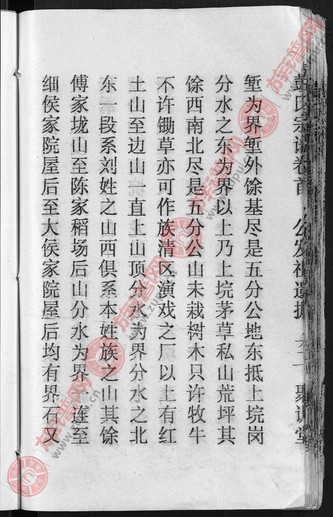 彭氏宗谱卷首 公发裕遗据 六二 聚訓堂
堑为界堑外馀基尽是五分公地东抵上垸岗
分水之东为界以上乃上垸茅草私山荒坪其
馀西南北尽是五分公山未栽树木只许牧牛
不许锄草亦可作族清区演戏之厂以上有红
土山至边山一直上山顶分水为界分水之北
东一段系刘姓之山西俱系本姓族之山其馀
傅家垅山至陈家稻场后山分水为界 连至
细侯家院屋后至大侯家院屋后均有界石又